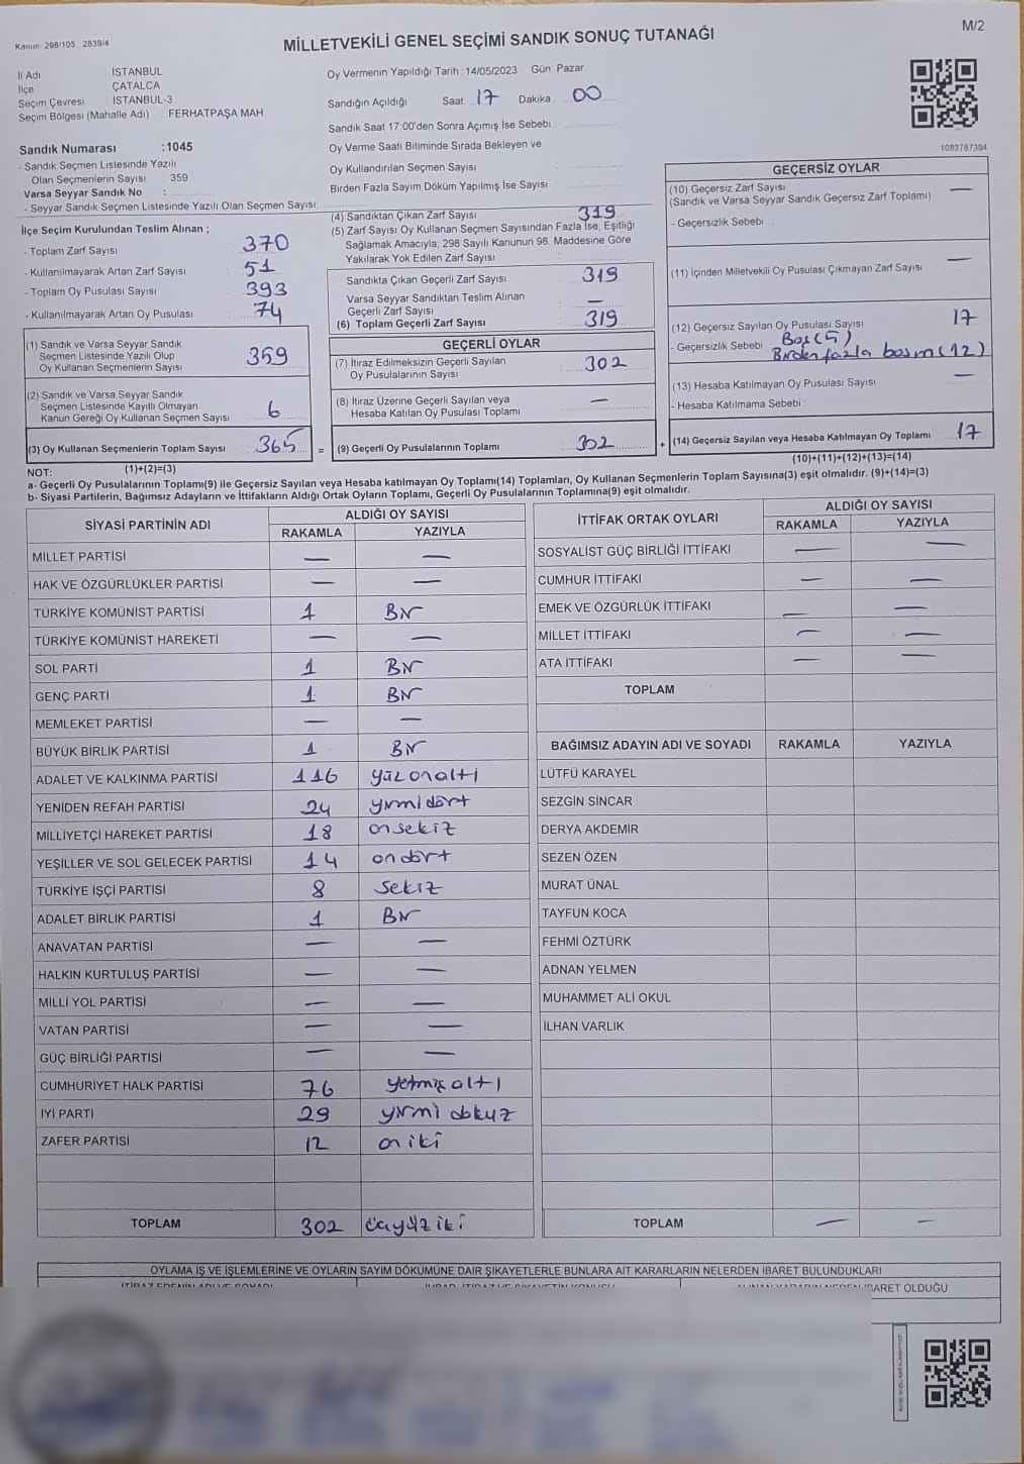 M/2
Kanun: 298/105 2839/4
MİLLETVEKİLİ GENEL SEÇİMİ SANDIK SONUÇ TUTANAĞI
İl Adı İSTANBUL
İlçe ÇATALCA
Seçim Çevresi İSTANBUL-3
Seçim Bölgesi (Mahalle Adı) FERHATPAŞA MAH
Oy Vermenin Yapıldığı Tarih :14/05/2023 Gün Pazar
Sandığın Açıldığı Saat 17 Dakika 00
Sandık Saat 17:00'den Sonra Açımış İse Sebebi
Oy Verme Saati Bitiminde Sırada Bekleyen ve
Oy Kullandırılan Seçmen Sayısı
Birden Fazla Sayım Döküm Yapılmış İse Sayısı
Sandık Numarası :1045
- Sandık Seçmen Listesinde Yazılı
Olan Seçmenlerin Sayısı 359
Varsa Seyyar Sandık No :
- Seyyar Sandık Seçmen Listesinde Yazılı Olan Seçmen Sayısı
İlçe Seçim Kurulundan Teslim Alınan ;
- Toplam Zarf Sayısı 370
- Kullanılmayarak Artan Zarf Sayısı 51
- Toplam Oy Pusulası Sayısı 393
- Kullanılmayarak Artan Oy Pusulası 74
(1) Sandık ve Varsa Seyyar Sandık
Seçmen Listesinde Yazılı Olup
Oy Kullanan Seçmenlerin Sayısı 359
(2) Sandık ve Varsa Seyyar Sandık
Seçmen Listesinde Kayıtlı Olmayan
Kanun Gereği Oy Kullanan Seçmen Sayısı 6
(3) Oy Kullanan Seçmenlerin Toplam Sayısı 365
(1)+(2)=(3)
(4) Sandıktan Çıkan Zarf Sayısı 319
(5) Zarf Sayısı Oy Kullanan Seçmen Sayısından Fazla İse, Eşitliği
Sağlamak Amacıyla, 298 Sayılı Kanunun 98. Maddesine Göre
Yakılarak Yok Edilen Zarf Sayısı
Sandıkta Çıkan Geçerli Zarf Sayısı 319
Varsa Seyyar Sandıktan Teslim Alınan
Geçerli Zarf Sayısı —
(6) Toplam Geçerli Zarf Sayısı 319
GEÇERLİ OYLAR
(7) İtiraz Edilmeksizin Geçerli Sayılan
Oy Pusulalarının Sayısı 302
(8) İtiraz Üzerine Geçerli Sayılan veya
Hesaba Katılan Oy Pusulası Toplamı —
= (9) Geçerli Oy Pusulalarının Toplamı 302
1083787394
GEÇERSİZ OYLAR
(10) Geçersiz Zarf Sayısı —
(Sandık ve Varsa Seyyar Sandık Geçersiz Zarf Toplamı)
- Geçersizlik Sebebi
(11) İçinden Milletvekili Oy Pusulası Çıkmayan Zarf Sayısı —
(12) Geçersiz Sayılan Oy Pusulası Sayısı 17
- Geçersizlik Sebebi Boş(5)
Birden fazla basım(12)
(13) Hesaba Katılmayan Oy Pusulası Sayısı —
- Hesaba Katılmama Sebebi
+ (14) Geçersiz Sayılan veya Hesaba Katılmayan Oy Toplamı 17
(10)+(11)+(12)+(13)=(14)
NOT:
a- Geçerli Oy Pusulalarının Toplamı(9) ile Geçersiz Sayılan veya Hesaba katılmayan Oy Toplamı(14) Toplamları, Oy Kullanan Seçmenlerin Toplam Sayısına(3) eşit olmalıdır. (9)+(14)=(3)
b- Siyasi Partilerin, Bağımsız Adayların ve İttifakların Aldığı Ortak Oyların Toplamı, Geçerli Oy Pusulalarının Toplamına(9) eşit olmalıdır.
SİYASİ PARTİNİN ADI ALDIĞI OY SAYISI
RAKAMLA YAZIYLA
MİLLET PARTİSİ — —
HAK VE ÖZGÜRLÜKLER PARTİSİ — —
TÜRKİYE KOMÜNİST PARTİSİ 1 Bir
TÜRKİYE KOMÜNİST HAREKETİ — —
SOL PARTİ 1 Bir
GENÇ PARTİ 1 Bir
MEMLEKET PARTİSİ — —
BÜYÜK BİRLİK PARTİSİ 1 Bir
ADALET VE KALKINMA PARTİSİ 116 yüzonaltı
YENİDEN REFAH PARTİSİ 24 yirmidört
MİLLİYETÇİ HAREKET PARTİSİ 18 onsekiz
YEŞİLLER VE SOL GELECEK PARTİSİ 14 ondört
TÜRKİYE İŞÇİ PARTİSİ 8 sekiz
ADALET BİRLİK PARTİSİ 1 Bir
ANAVATAN PARTİSİ — —
HALKIN KURTULUŞ PARTİSİ — —
MİLLİ YOL PARTİSİ — —
VATAN PARTİSİ — —
GÜÇ BİRLİĞİ PARTİSİ — —
CUMHURİYET HALK PARTİSİ 76 yetmiş altı
İYİ PARTİ 29 yirmi dokuz
ZAFER PARTİSİ 12 oniki
TOPLAM 302 üçyüz iki
İTTİFAK ORTAK OYLARI ALDIĞI OY SAYISI
RAKAMLA YAZIYLA
SOSYALİST GÜÇ BİRLİĞİ İTTİFAKI — —
CUMHUR İTTİFAKI — —
EMEK VE ÖZGÜRLÜK İTTİFAKI — —
MİLLET İTTİFAKI — —
ATA İTTİFAKI — —
TOPLAM
BAĞIMSIZ ADAYIN ADI VE SOYADI RAKAMLA YAZIYLA
LÜTFÜ KARAYEL
SEZGİN SİNCAR
DERYA AKDEMİR
SEZEN ÖZEN
MURAT ÜNAL
TAYFUN KOCA
FEHMİ ÖZTÜRK
ADNAN YELMEN
MUHAMMET ALİ OKUL
İLHAN VARLIK
TOPLAM — —
OYLAMA İŞ VE İŞLEMLERİNE VE OYLARIN SAYIM DÖKÜMÜNE DAİR ŞİKAYETLERLE BUNLARA AİT KARARLARIN NELERDEN İBARET BULUNDUKLARI
İBARET OLDUĞU